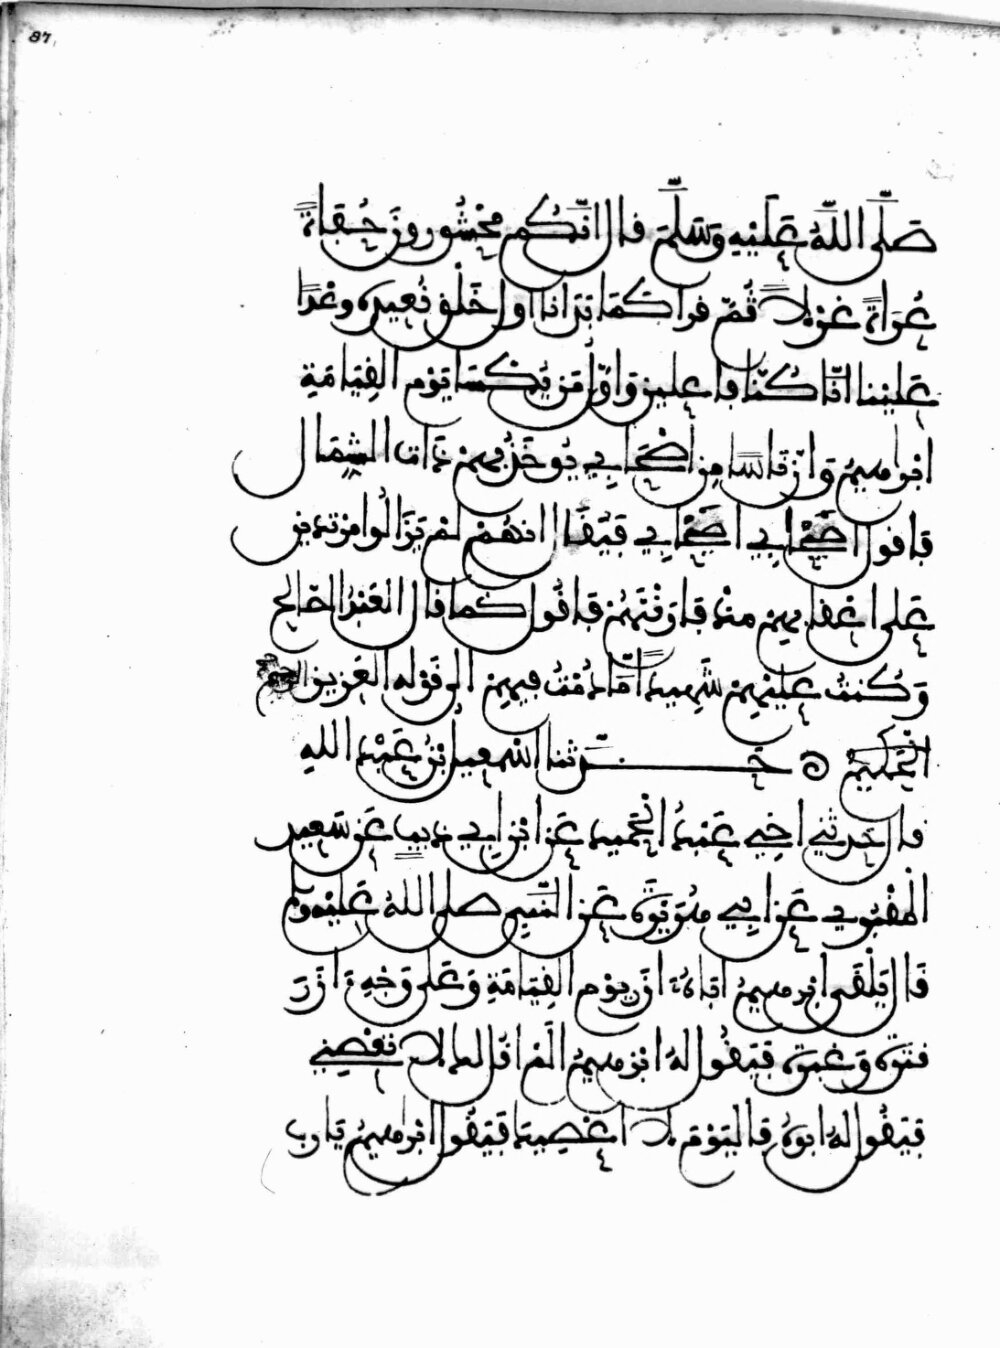 87
صَلَّى اللهُ عَلَيْهِ وَسَلَّمَ قال انَّكُم مَحْشُورونَ حُفَاةً
عُرَاةً غُرْلاً ثُمّ قرأ كَمَا بَدَأنا أولَ خَلْقٍ نُعِيدُه وعْدًا
عَلَيْنا انّا كُنّا فاعلينَ وَأوّلُ مَن يُكْسَا يَوْم القِيَامَةِ
ابْراهيمُ وَانّ نَاسًا مِن اصْحَابِي يُوخَذُ بهِم ذَاتَ الشِّمَال
فَاقول اصْحَابِي اصْحَابِي فَيَقَال انهُمْ لمْ يَزَالُوا مرتدين
عَلى اعْقابهِم منذ فارَقْتَهُمْ فَاقُول كما قال العَبْدُ الصّالح
وَكُنتُ عليْهِمْ شَهِيدا مّا دُمْتُ فيهِم الى قوْله العَزيز الحكيم
الحَكيمُ ۞ حَـــدّثنا اسْمعيل ابْنُ عَبْد اللهِ
قال حَدثنِي اخِي عَبْدُ الحَميد عَن ابْن ابِي ذيب عَن سَعِيد
الْمَقْبُري عَن ابِي هُرَيْرَة عَن النّبِي صلى اللهُ عَلَيْه وسلم
قَال يَلْقَى ابرهيمُ ابَاهُ ازَرَ يوْم القِيَامَةِ وَعَلى وَجْهِ ازَرَ
قتَرَة وَغَبَرَة فيَقُول لهُ ابرْهيمُ الَمْ اقُل لك لا تَعْصِنِي
فيَقُول لهُ ابوهُ فاليَوْمَ لا اعْصِيك فَيَقُول ابْراهيمُ يَا رب